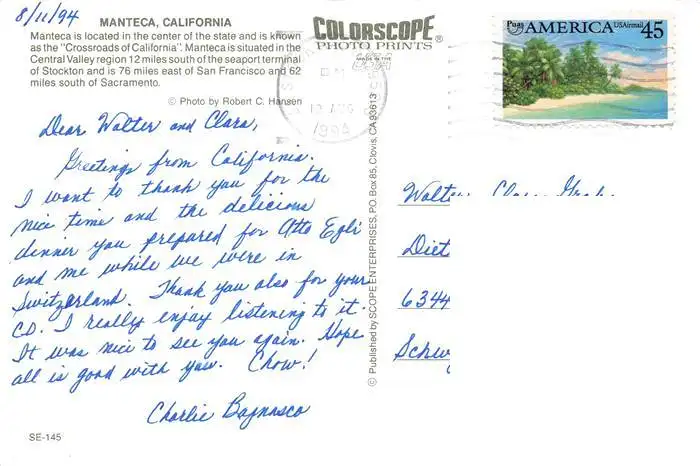 8/11/94
MANTECA, CALIFORNIA
Manteca is located in the center of the state and is known
as the "Crossroads of California". Manteca is situated in the
Central Valley region 12 miles south of the seaport terminal
of Stockton and is 76 miles east of San Francisco and 62
miles south of Sacramento.
© Photo by Robert C. Hansen
Dear Walter and Clara,
Greetings from California.
I want to thank you for the
nice time and the delicious
dinner you prepared for Otto Egli
and me while we were in
Switzerland. Thank you also for your
CD. I really enjoy listening to it.
It was nice to see you again. Hope
all is good with you. Chow!
Charlie Bagnasco
SE-145
COLORSCOPE®
PHOTO PRINTS
MADE IN THE
USA
© Published by SCOPE ENTERPRISES, P.O. Box 85, Clovis, CA 93613
PM
12 AUG
1994
PUAS AMERICA USAirmail 45
Walter
Diet
6344